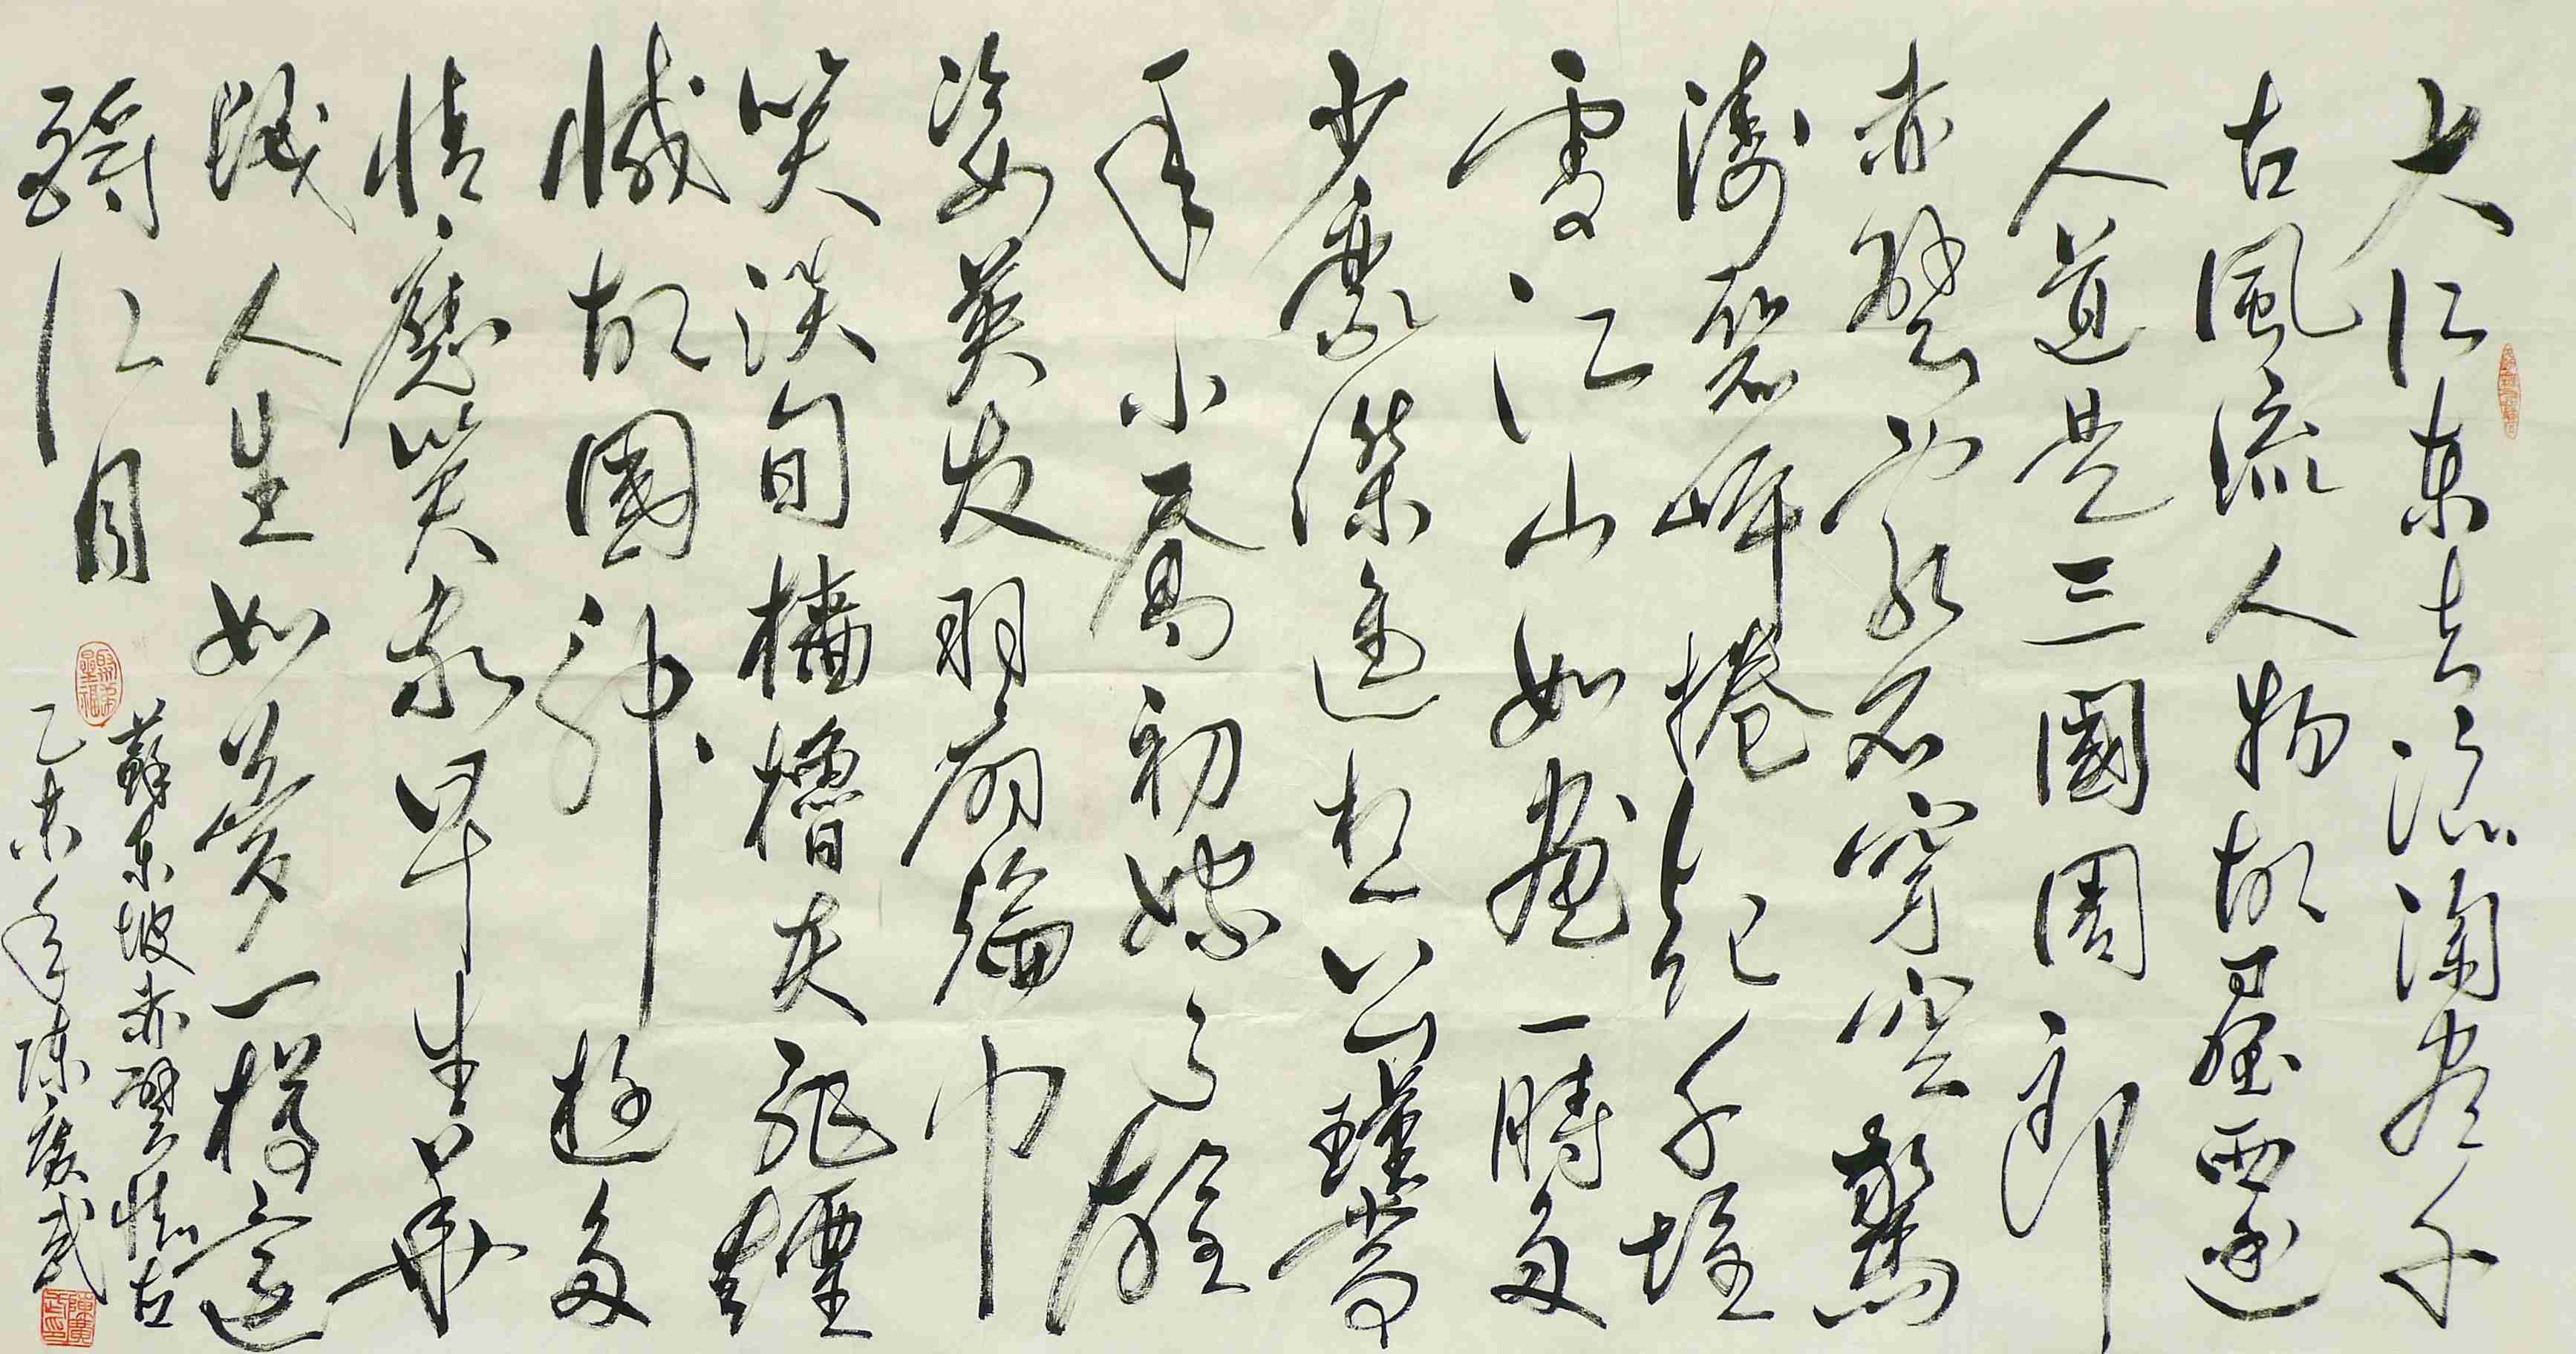 大江東去浪淘盡千
古風流人物故壘西邊
人道是三國周郎
赤壁亂石穿空驚
濤裂岸捲起千堆
雪江山如畫一時多
少豪傑遙想公瑾當
年小喬初嫁了雄
姿英發羽扇綸巾
笑談間檣櫓灰飛煙
滅故國神遊多
情應笑我早生華
髮人生如夢一樽還
酹江月
蘇東坡赤壁懷古
乙未年陳廣武